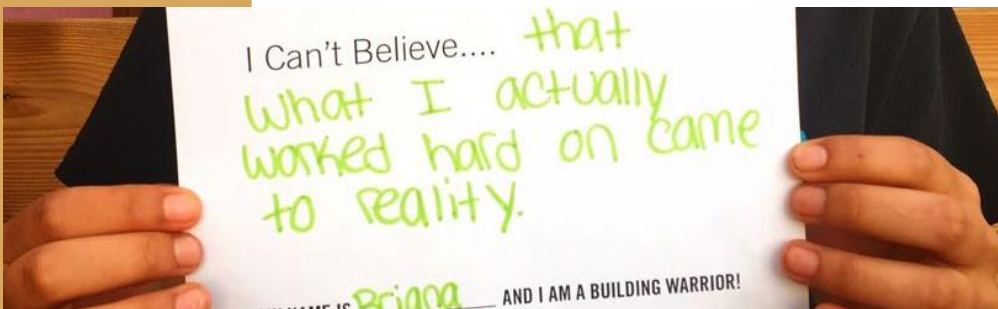 I Can't Believe.... that
What I actually
worked hard on came
to reality.
NAME IS Briana AND I AM A BUILDING WARRIOR!